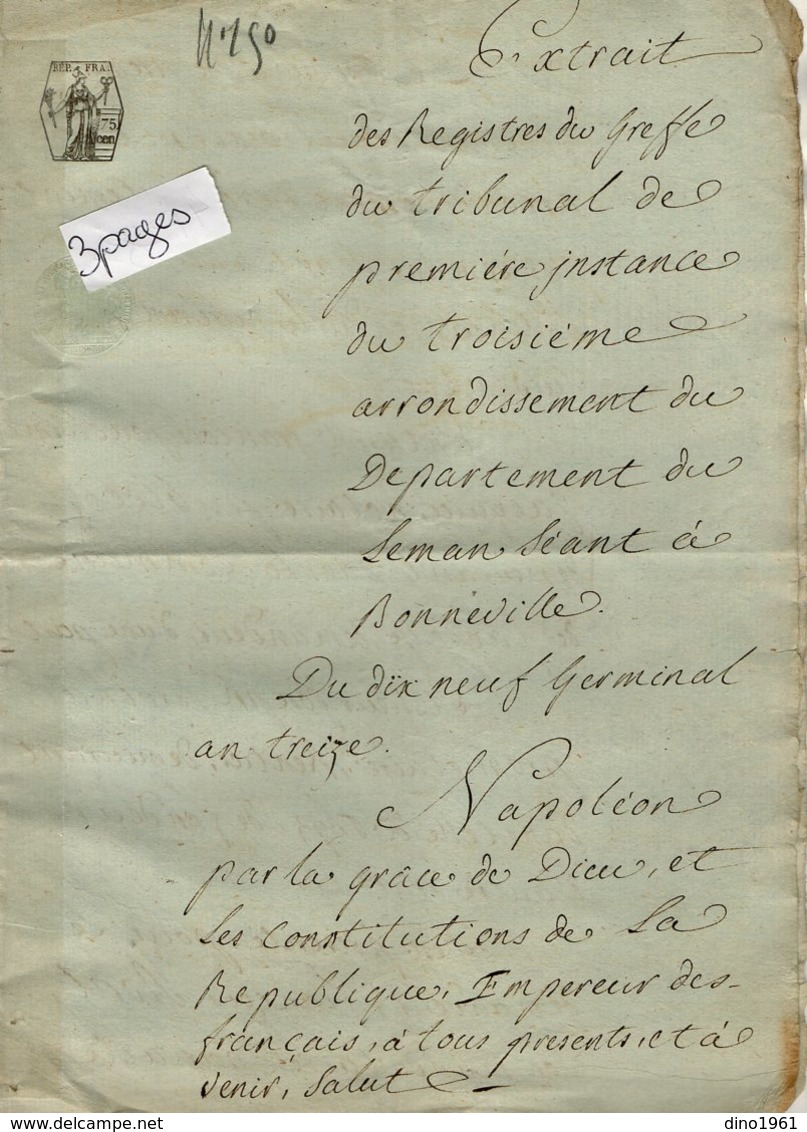 N.º 150
Extrait
REP. FRA.
75
cen
des Registres du Greffe
du tribunal de
3 pages
première instance
du troisiéme
arrondissement du
Departement du
Leman Séant à
Bonneville.
Du dix neuf Germinal
an treize.
Napoléon
par la grâce de Dieu, et
Les Constitutions de La
Republique, Empereur des
français, à tous presents, et à
venir, Salut
dino1961